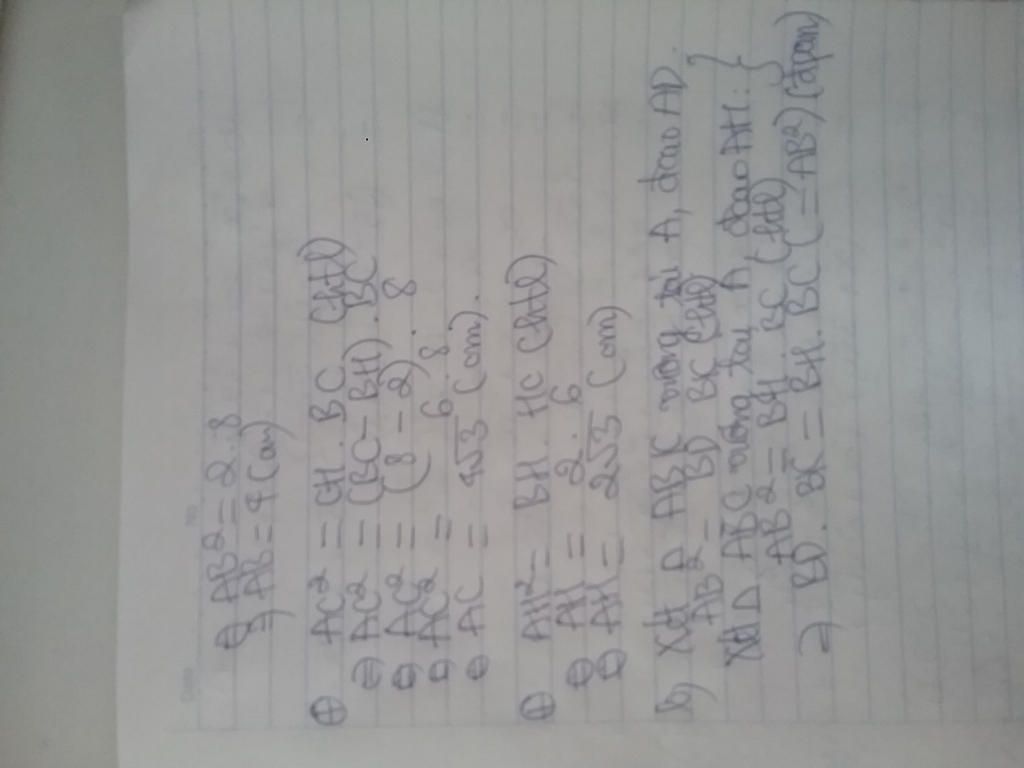 ⇔ AB² = 2.8
⇒ AB = 4 (cm)
⊕ AC² = CH . BC (cthtl)
⇒ AC² = (BC - BH) . BC
⇔ AC² = (8 - 2) . 8
⇔ AC² = 6 . 8
⇔ AC = 4√3 (cm).
⊕ AH² = BH . HC (cthtl)
⇔ AH = 2 . 6
⇔ AH = 2√3 (cm)
b) Xét Δ ABK vuông tại A, đcao AD.
AB² = BD . BC (htl)
Xét Δ ABC vuông tại A đcao AH: }
AB² = BH . BC (htl)
⇒ BD . BK = BH . BC (= AB²) (đpcm)